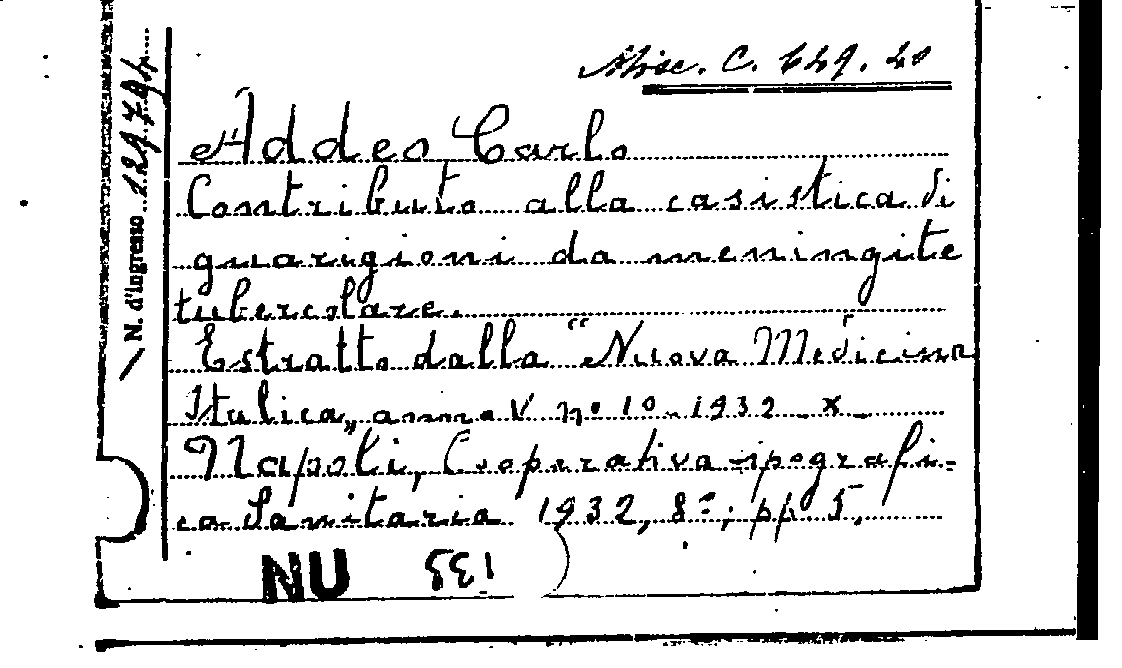 Misc. C. 649. 20
Addeo Carlo
Contributo alla casistica di
guarigioni da meningite
tubercolare.
Estratto dalla "Nuova Medicina
Italica„ anno V nº 10 - 1932 - X -
Napoli, Cooperativa tipografi-
ca Sanitaria 1932, 8º; pp 5.
N. d'ingresso
NU